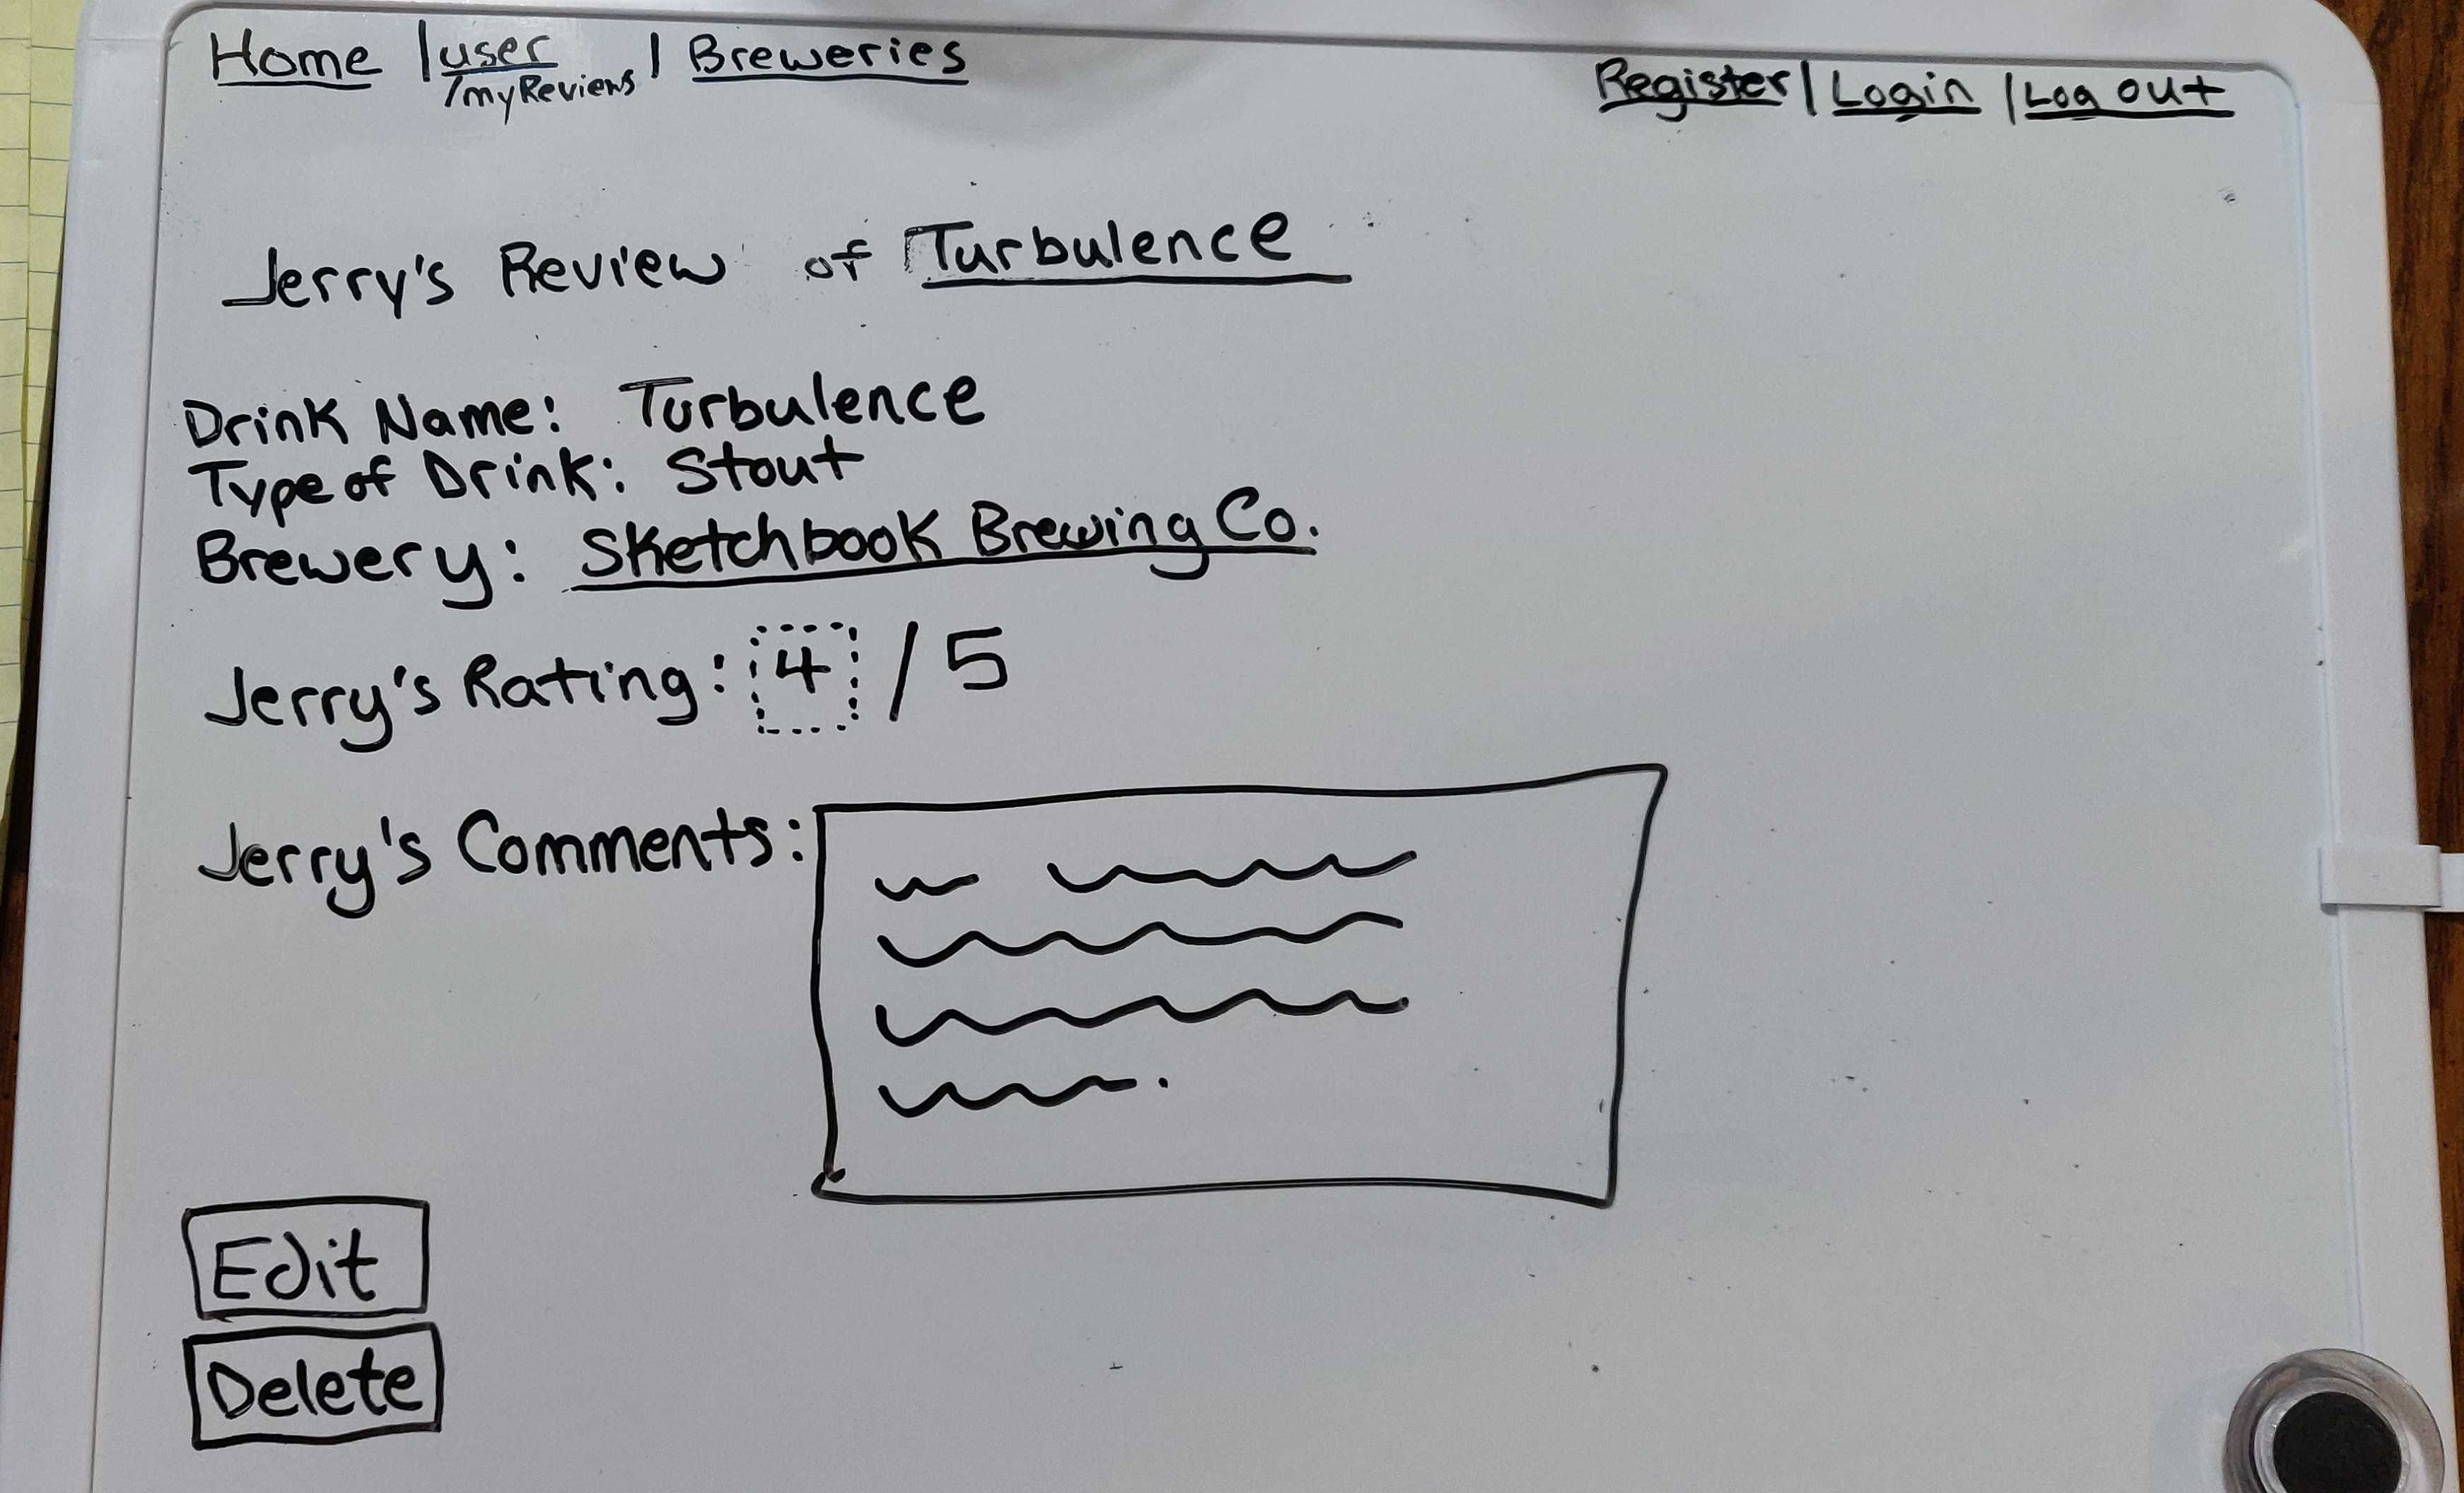 Home | user | Breweries
/myReviews
Register | Login | Log out
Jerry's Review of Turbulence
Drink Name: Turbulence
Type of Drink: Stout
Brewery: Sketchbook Brewing Co.
Jerry's Rating: 4 / 5
Jerry's Comments:
Edit
Delete